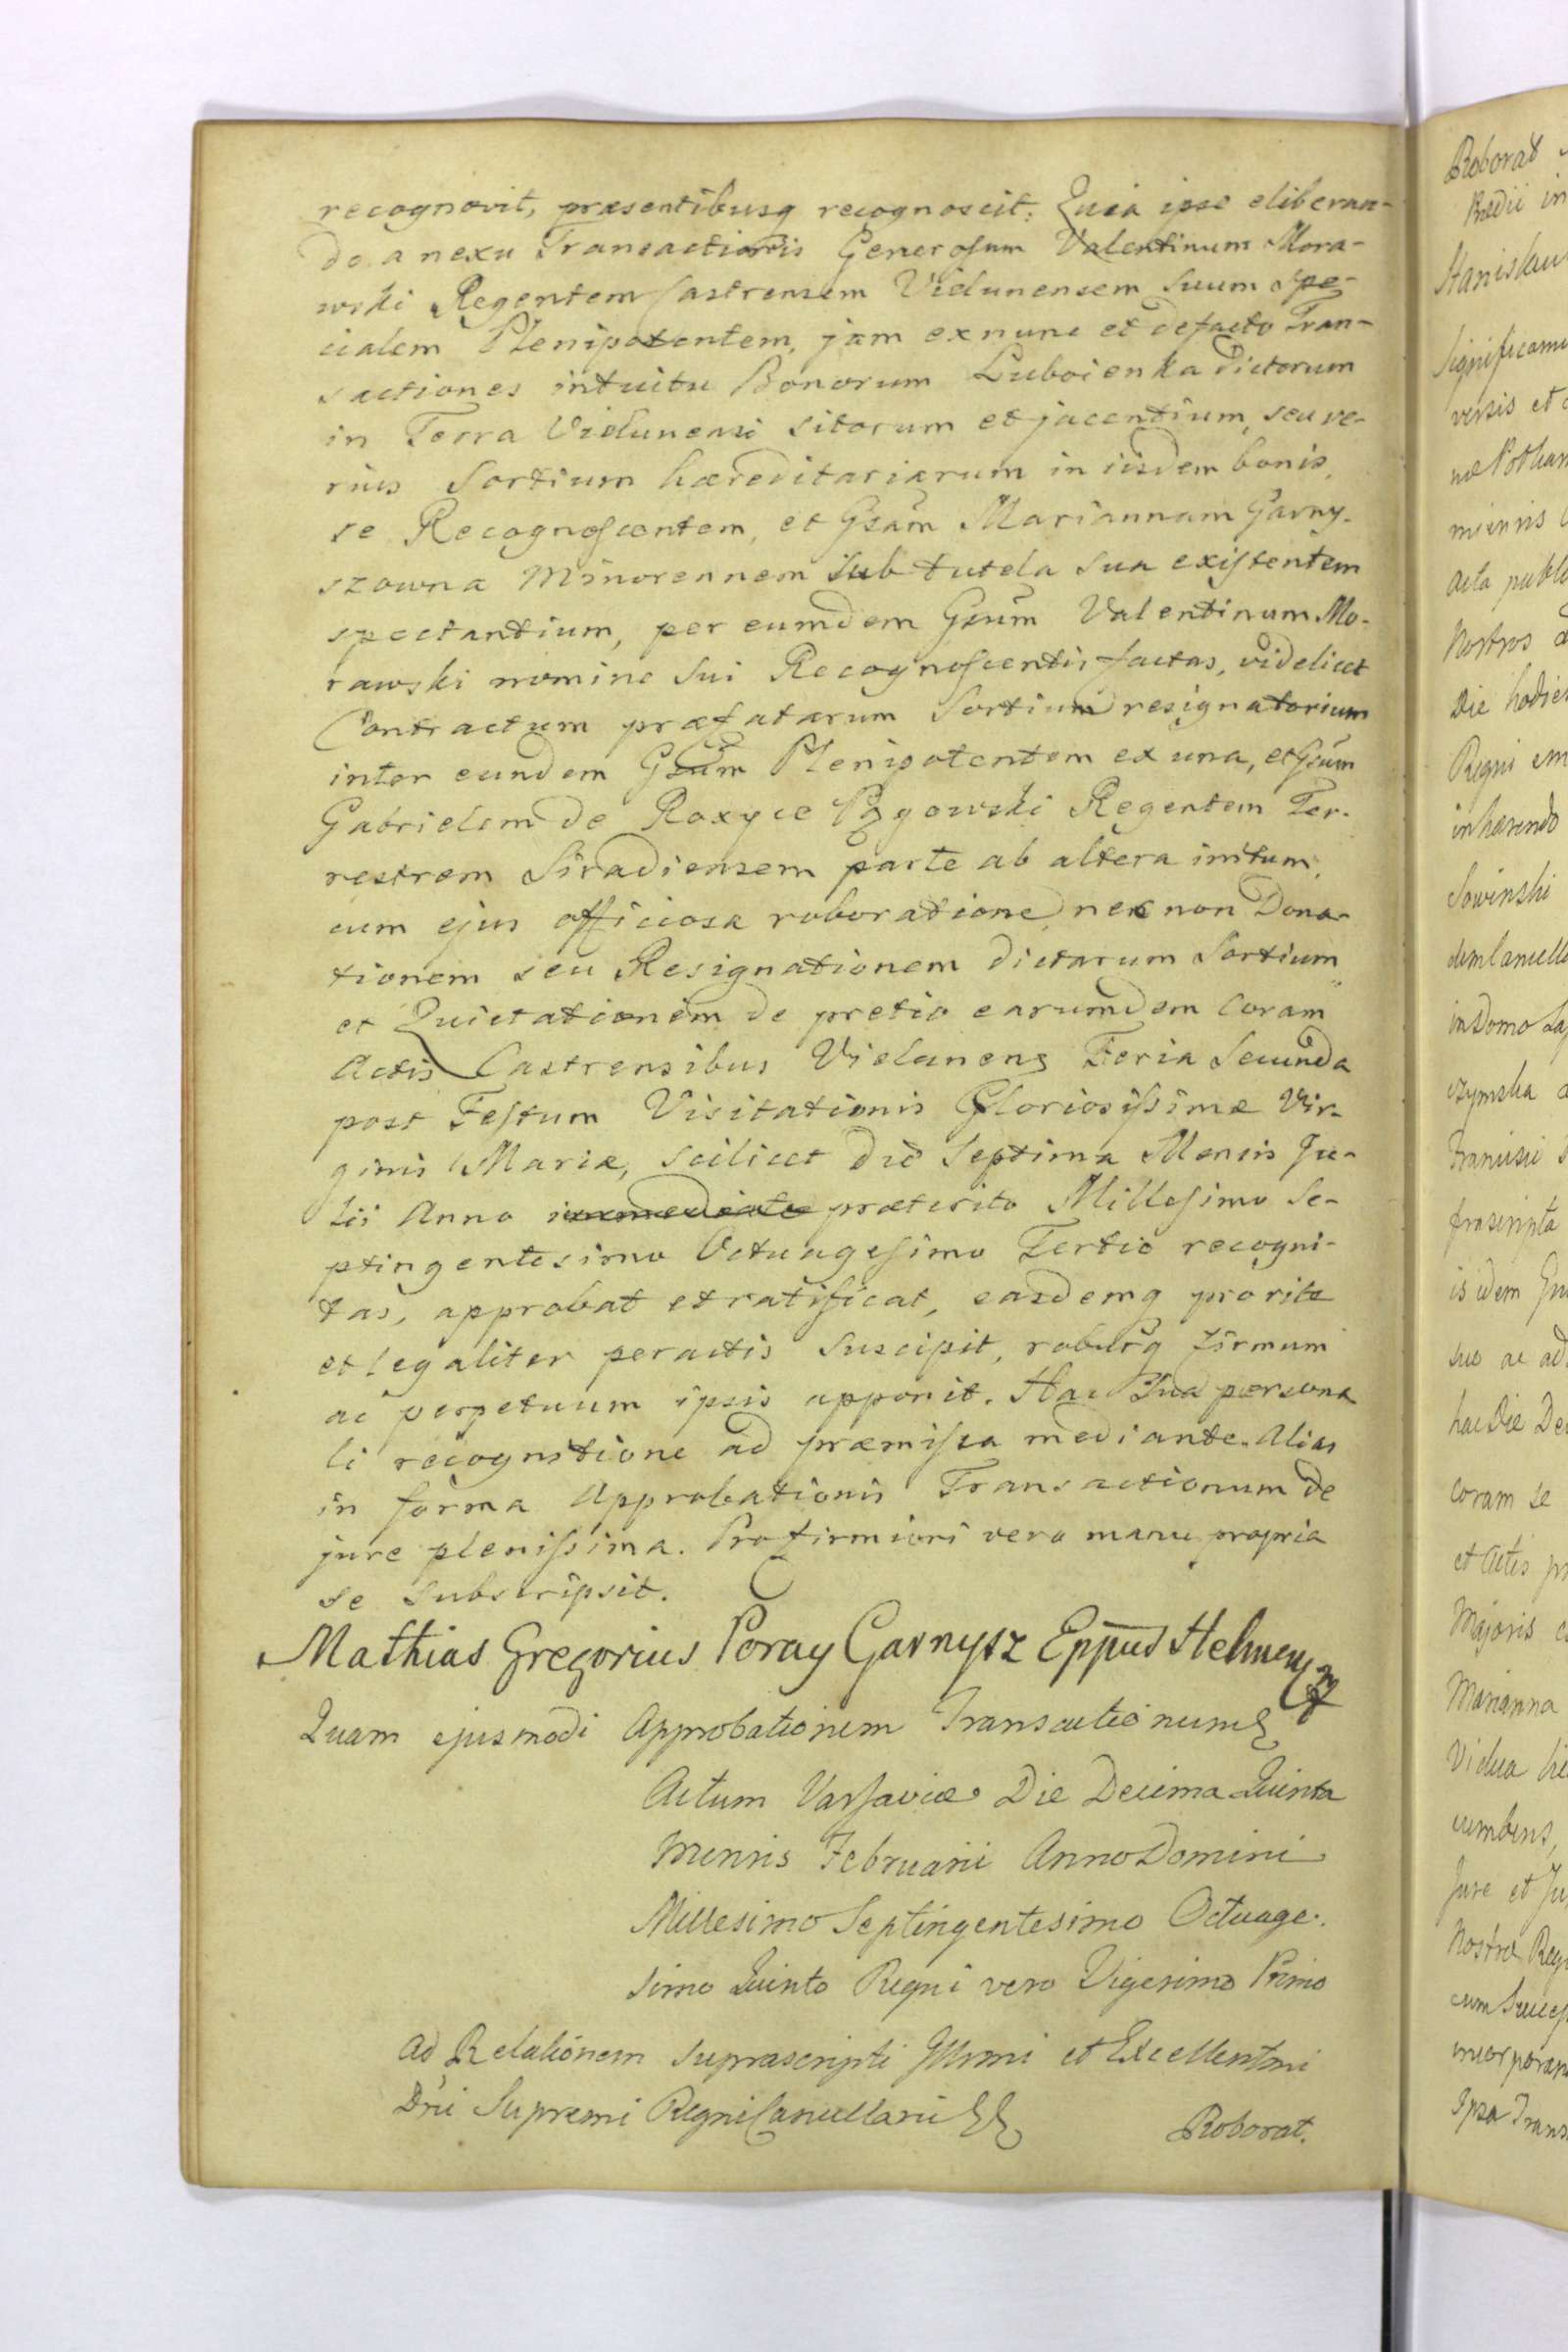 recognovit, præsentibusq recognoscit: Quia ipse eliberan-
do a nexu Transactionis Generosum Valentinum Mora-
wski Regentem Castrensem Vielunensem Suum Spe-
cialem Plenipotentem, jam exnunc et defacto Tran-
sactiones intuitu Bonorum Luboienka dictorum
in Terra Vielunensi sitorum et jacentium, seu ve-
rius Sortium hæreditariarum in iisdem bonis,
se Recognoscentem, et Gsam Mariannam Garny-
szowna Minorennem sub tutela sua existentem
spectantium, per eumdem Gsum Valentinum Mo-
rawski nomine Sui Recognoscentis factas, videlicet
Contractum præfatarum Sortium resignatorium
inter eundem Gsum Plenipotentem ex una, et Gsum
Gabrielem de Roxyce Pągowski Regentem Ter-
restrem Siradiensem parte ab altera initum,
cum ejus officiosa roboratione, nec non Dona-
tionem seu Resignationem dictarum Sortium
et Quietationem de pretio earumdem Coram
Actis Castrensibus Vielunens Feria Secunda
post Festum Visitationis Gloriosissimæ Vir-
ginis Mariæ, scilicet die Septima Mensis Ju-
lii Anno immediate præterito Millesimo Se-
ptingentesimo Octuagesimo Tertio recogni-
tas, approbat et ratificat, easdemq pro rite
et legaliter peractis Suscipit, roburq firmum
ac perpetuum ipsis apponit. Hac Sua persona
li recognitione ad præmissa mediante. Alias
in forma Approbationis Transactionum de
jure plenissima. Pro firmiori vero manu propria
se Subscripsit.
Mathias Gregorius Poray Garnysz Eppus Helmens
Quam ejusmodi Approbationem Transactionum
Actum Varsaviæ Die Decima Quinta
Mensis Februarii Anno Domini
Millesimo Septingentesimo Octuage-
simo Quinto Regni vero Vigesimo Primo
Ad Relationem Suprascripti Illmi et Excellentmi
Dni Supremi Regni Cancellarii
Roborat.
Roborat
Stanislaus
versis et
acta publ
Nostros
Die hodier
inhærendo
Sowinski
in Domo
is idem
suo ac ad
hac Die De
Coram se
et Actis pr
Majoris
Marianna
Vidua
cumbens,
Jure et Ju
Nostræ Reg
cum Succes
Ipsa Trans